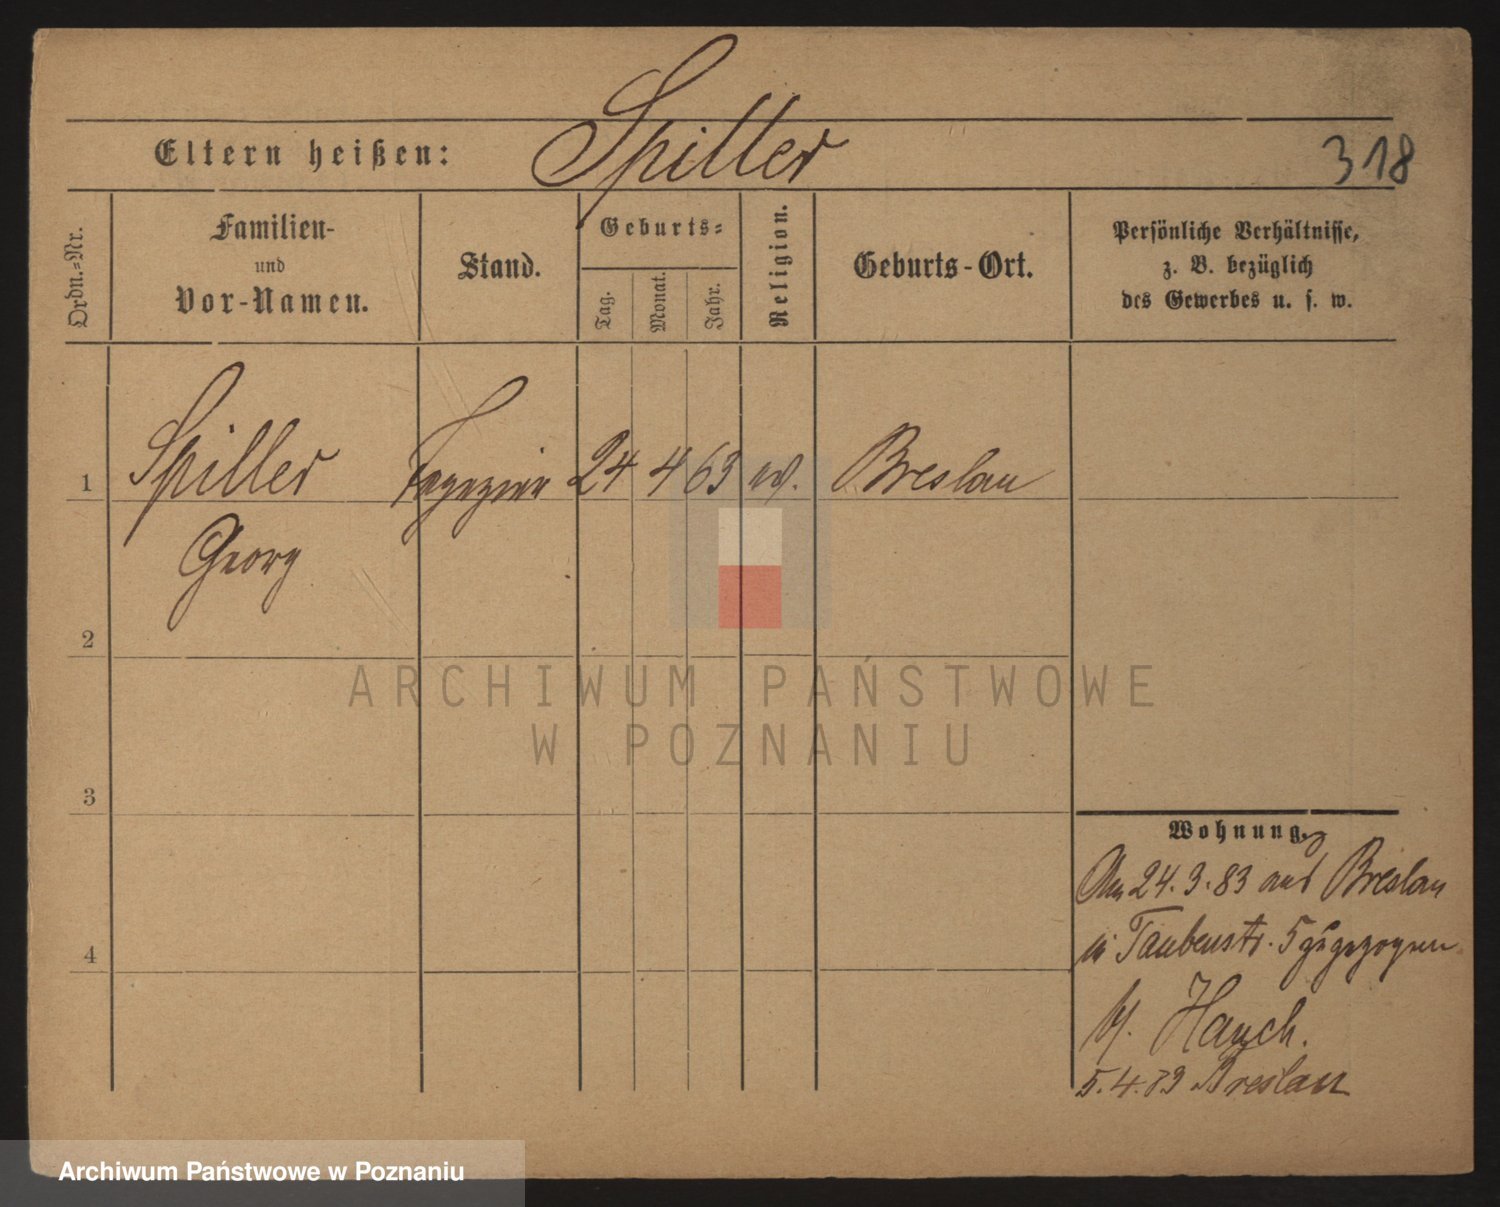 Spiller
Eltern heißen:
318
Ordn.-Nr.
Familien-
und
Vor-Namen.
Stand.
Geburts-
Tag.
Monat.
Jahr.
Religion.
Geburts-Ort.
Persönliche Verhältnisse,
z. B. bezüglich
des Gewerbes u. s. w.
1
Spiller
Tapezier
24
4
63
Breslau
Georg
2
ARCHIWUM PAŃSTWOWE
W POZNANIU
3
Wohnung.
Am 24.3.83 aus Breslau
n Taubenstr. 5 zugezogen
b/.
5.4.83 Breslau
4
Archiwum Państwowe w Poznaniu